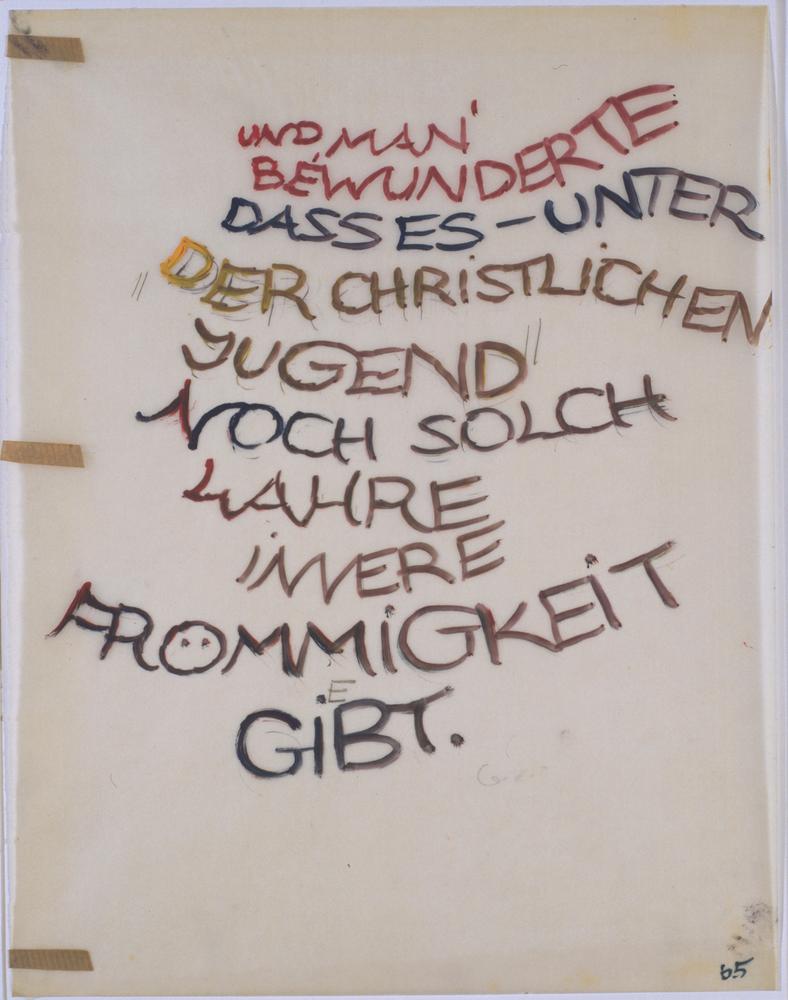 UND MAN
BEWUNDERTE
DASS ES – UNTER
"DER CHRISTLICHEN
JUGEND"
NOCH SOLCH
WAHRE
INNERE
FRÖMMIGKEIT
E
GIBT.
65